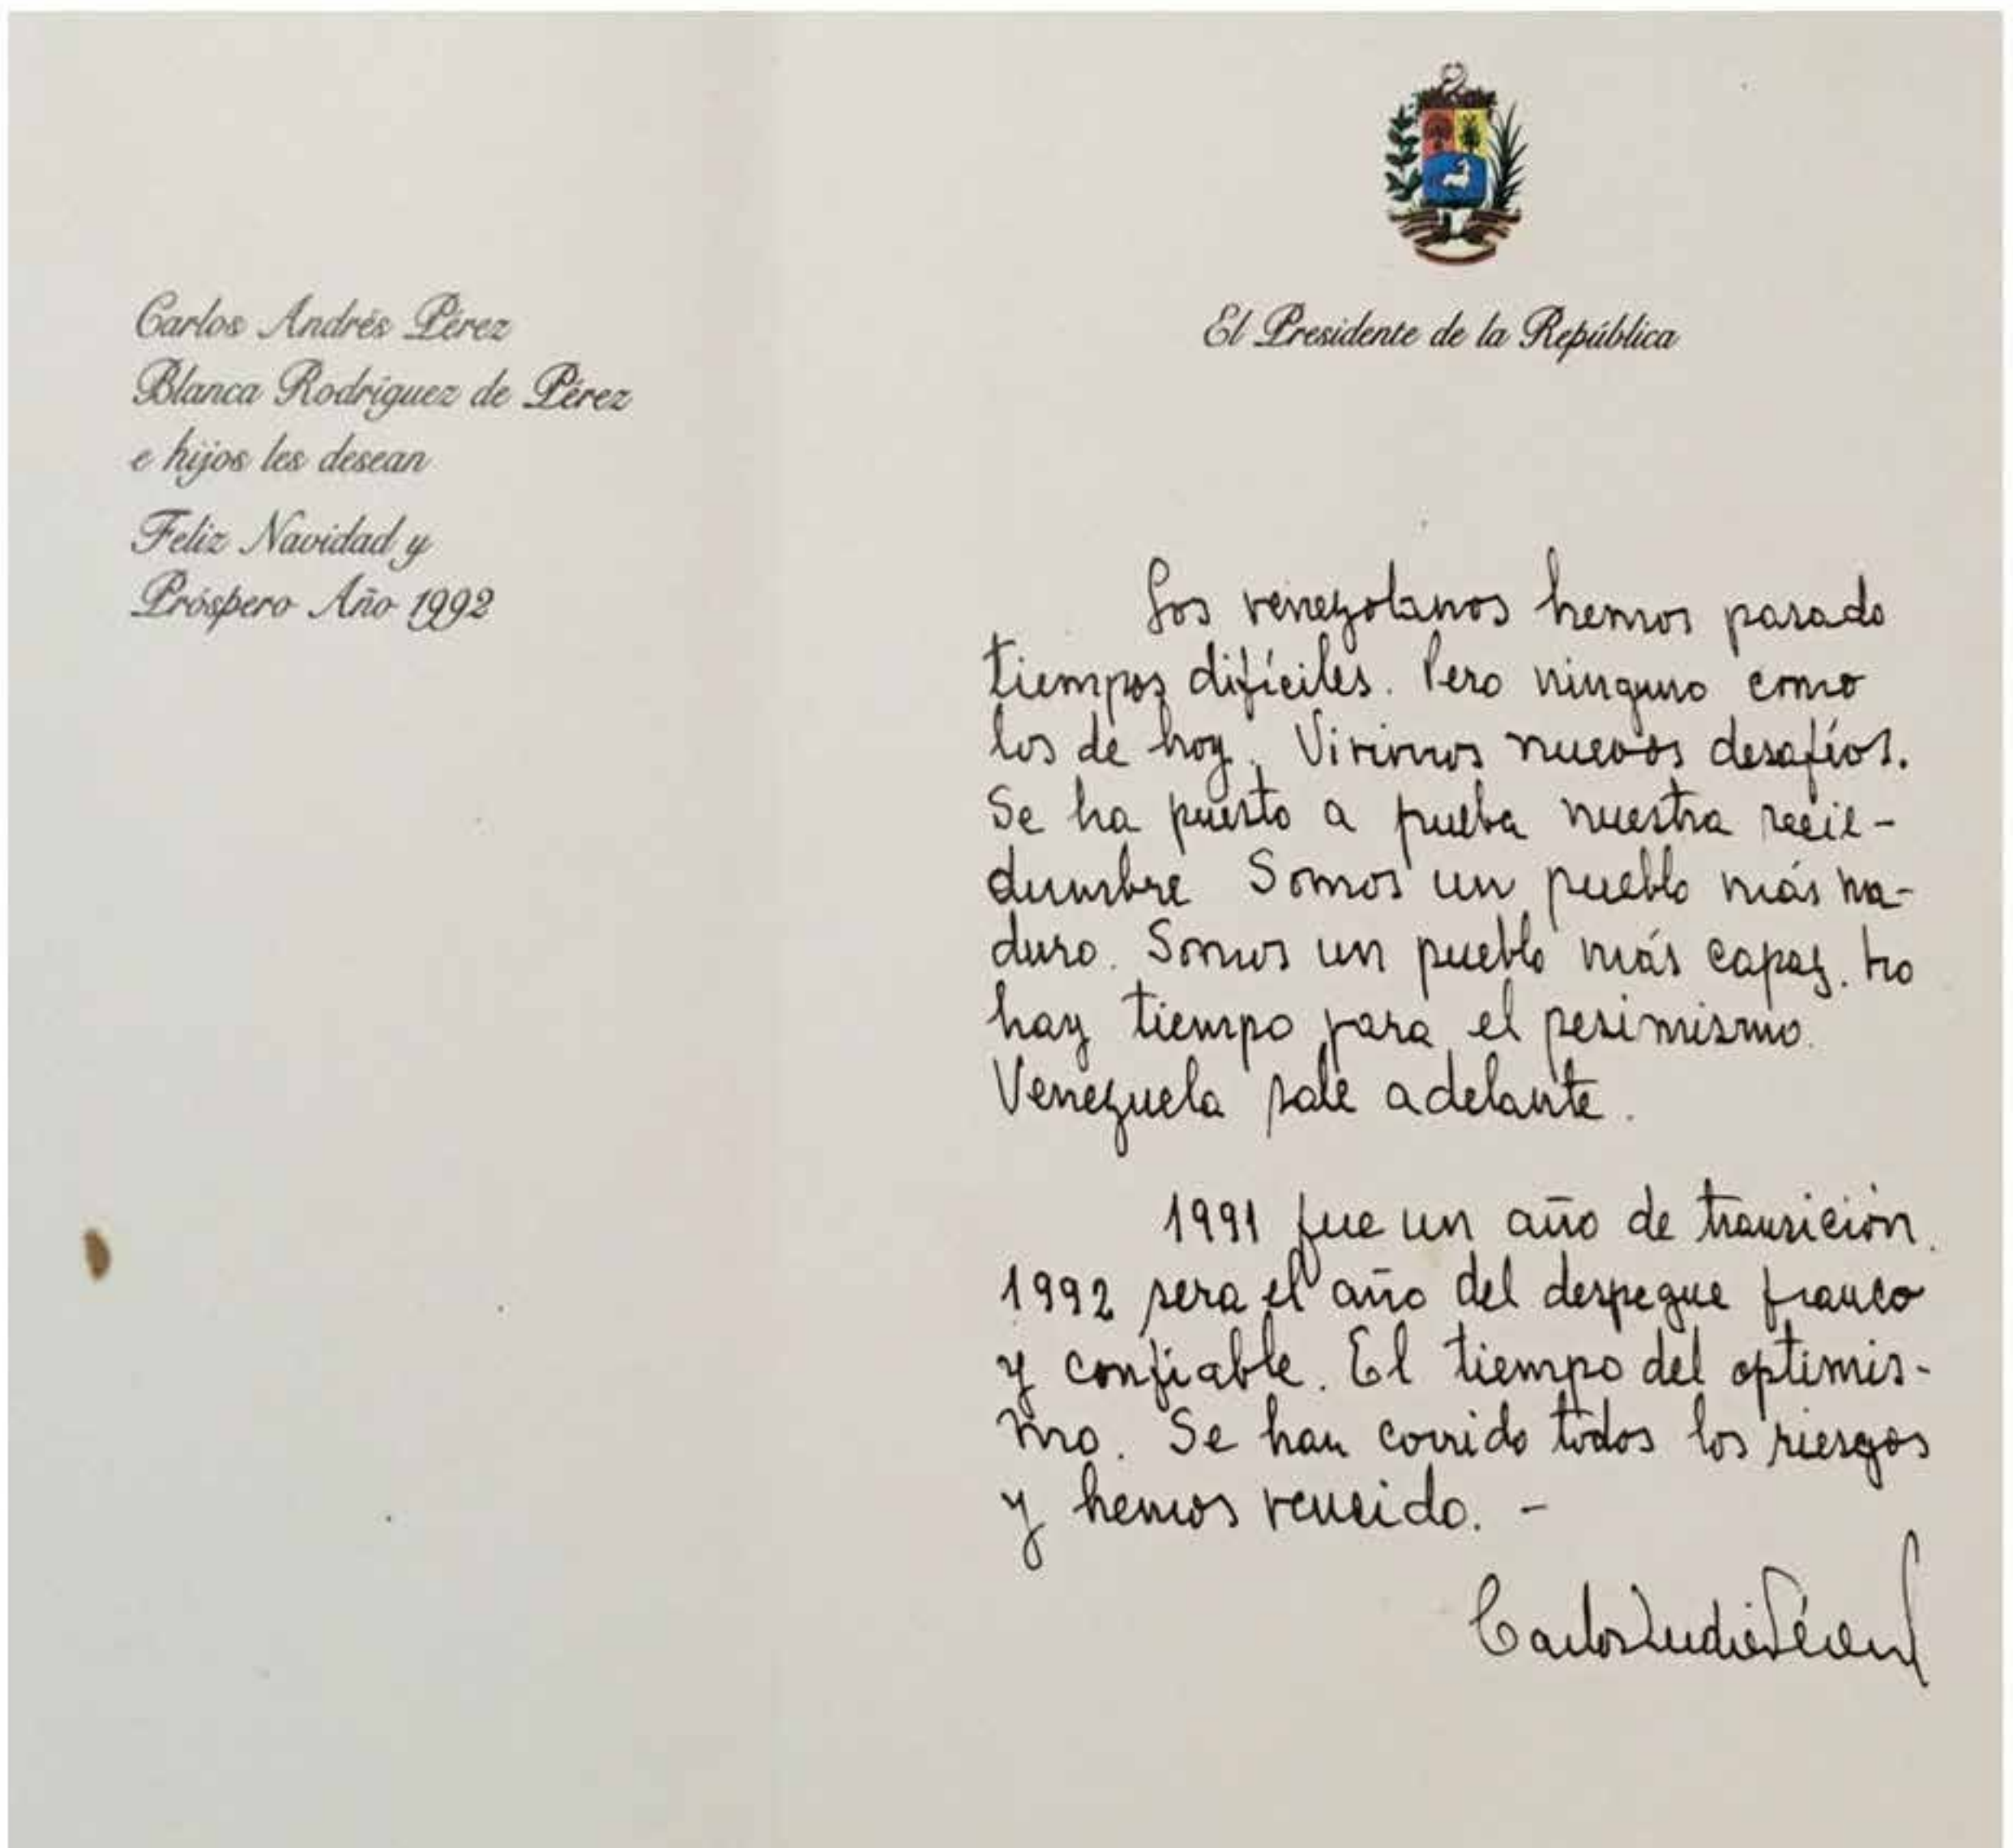 Carlos Andrés Pérez
Blanca Rodríguez de Pérez
e hijos les desean
Feliz Navidad y
Próspero Año 1992
El Presidente de la República
Los venezolanos hemos pasado
tiempos difíciles. Pero ninguno como
los de hoy. Vivimos nuevos desafíos.
Se ha puesto a prueba nuestra recie-
dumbre Somos un pueblo más ma-
duro. Somos un pueblo más capaz. No
hay tiempo para el pesimismo.
Venezuela sale adelante.
1991 fue un año de transición.
1992 sera el año del despegue franco
y confiable. El tiempo del optimis-
mo. Se han corrido todos los riesgos
y hemos vencido. -
Carlos Andrés Pérez